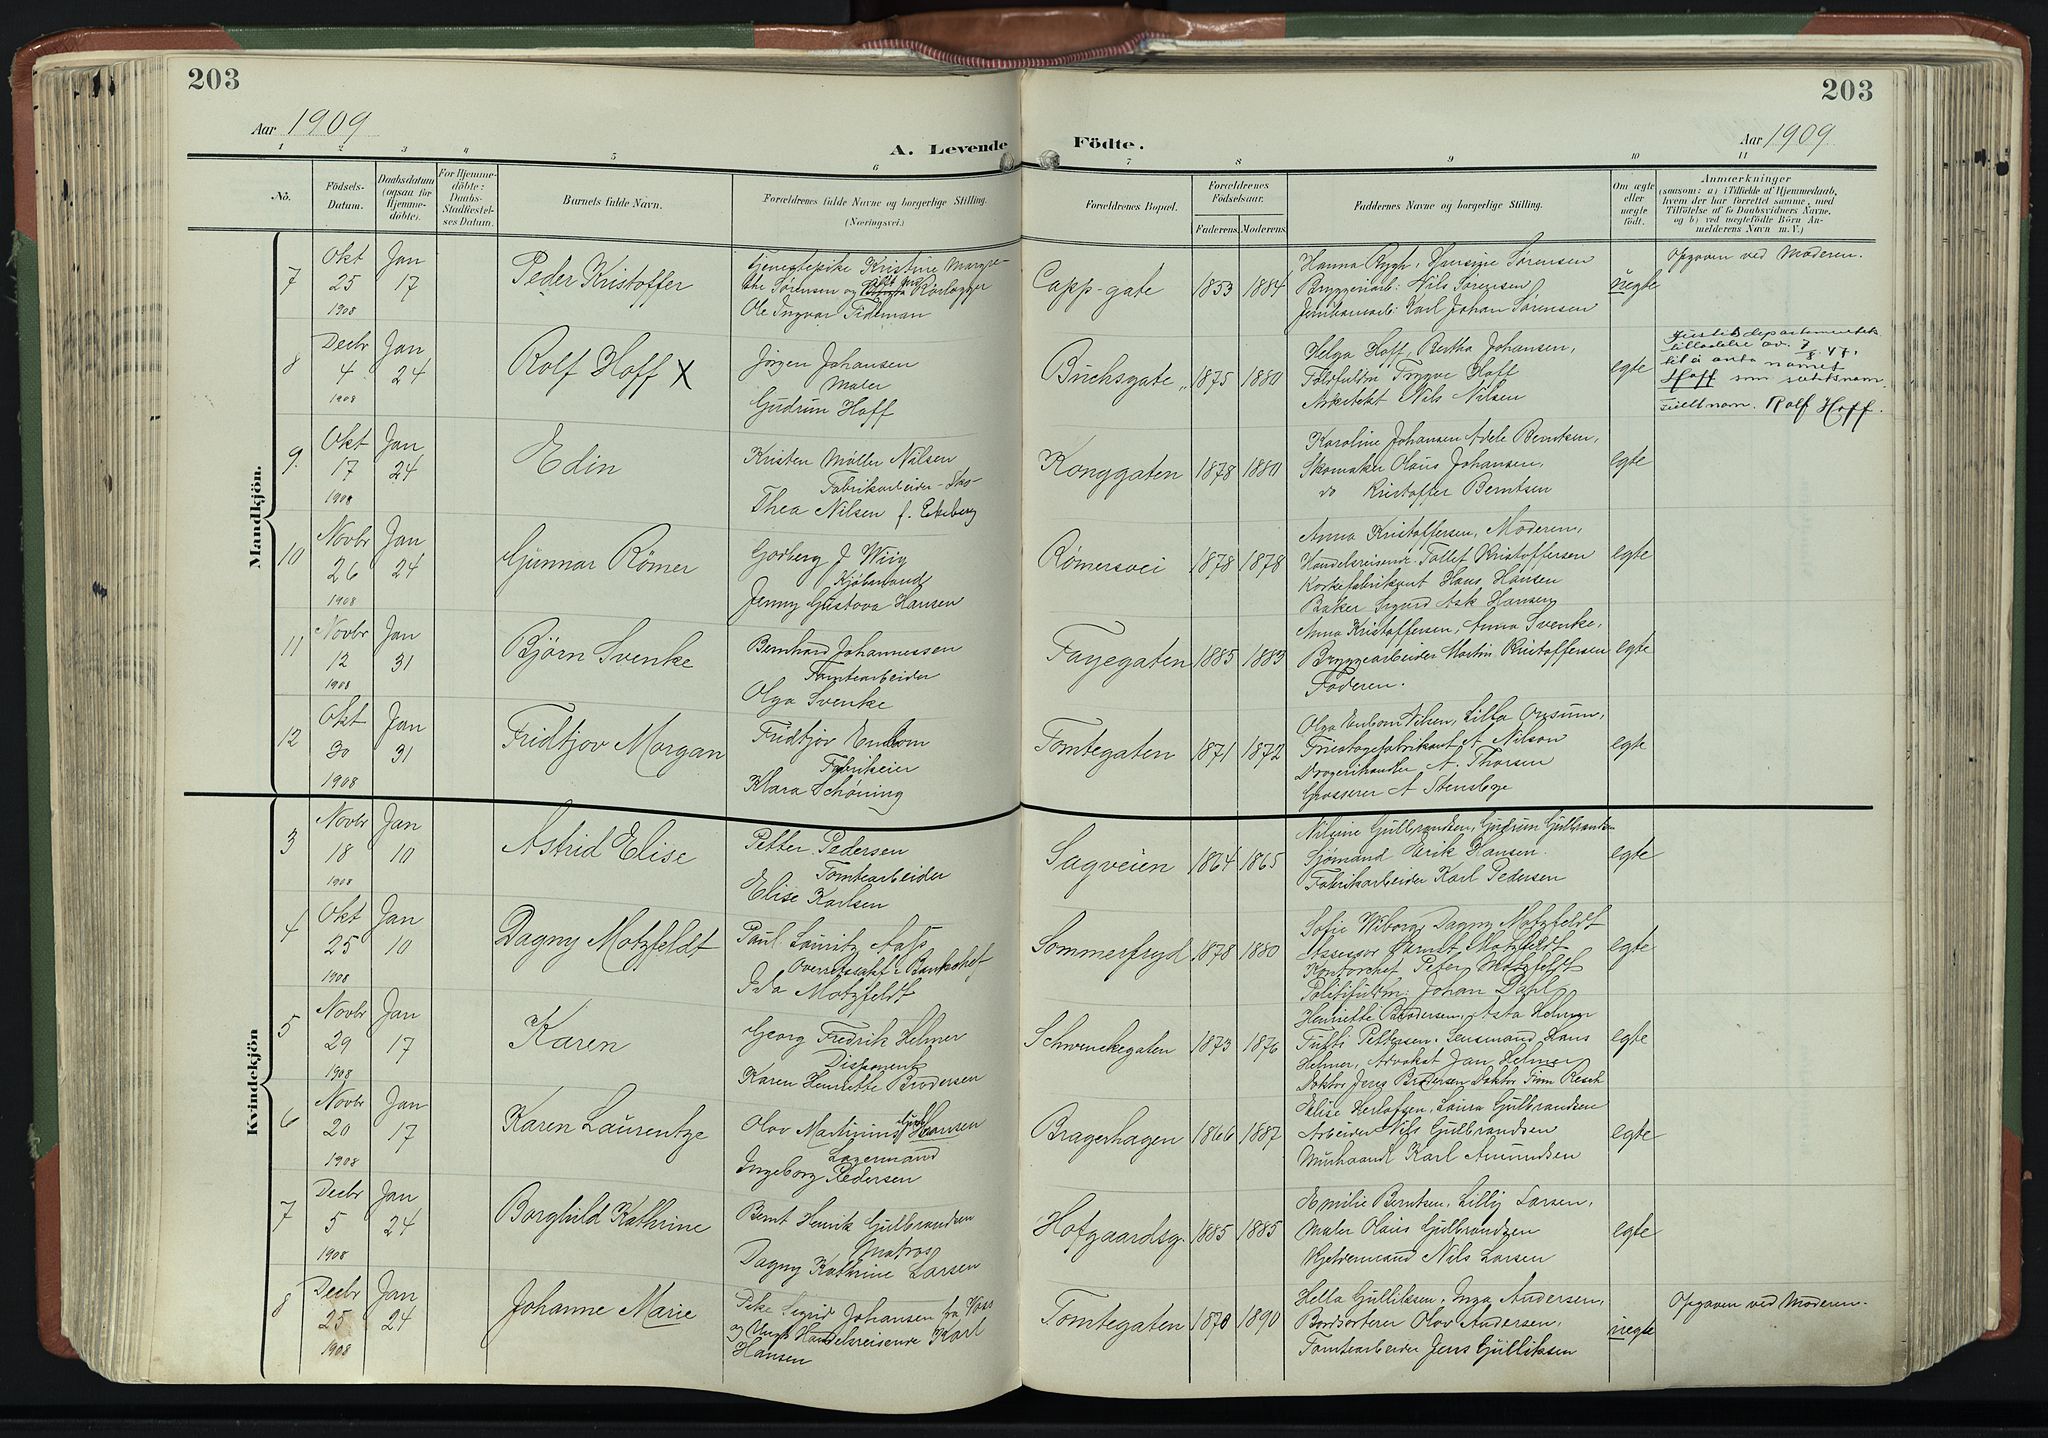 203
203
Aar 1909
A. Levende Födte.
Aar 1909
1 2 3 4 5 6 7 8 9 10 11
No.
Födsels-
Datum.
Daabsdatum
(ogsaa for
Hjemme-
döbte).
For Hjemme-
döbte:
Daabs-
Stadfæstel-
ses Datum.
Barnets fulde Navn.
Forældrenes fulde Navne og borgerlige Stilling.
(Næringsvei.)
Forældrenes Bopæl.
Forældrenes
Födselsaar.
Faderens. Moderens.
Faddernes Navne og borgerlige Stilling.
Om ægte
eller
uægte
født.
Anmærkninger
(saasom: a) i Tilfælde af Hjemmedaab,
hvem der har forrettet samme, med
Tilföielse af to Daabsvidners Navne,
og b) ved uægtefödte Börn An-
melderens Navn m. V.)
Mandkjön.
7
Okt
25
1908
Jan
17
Peder Kristoffer
Tjenestepike Kristine Margre-
the Sørensen og Rørlægger
Ole Ingvar Tideman
Capp-gate
1853 1884
Hanna Rygh, Hansine Sørensen
Bryggeriarb: Nils Sørensen
Jernbanearb: Karl Johan Sørensen
uegte
Opgaven ved Moderen.
8
Decbr
4
1908
Jan
24
Rolf Hoff X
Jörgen Johansen
Maler
Gudrun Hoff
Buchsgate
1875 1880
Helga Hoff, Bertha Johansen,
Toldfuldm Trygve Hoff
Arkitekt Nils Nilsen
egte
Justisdepartementets
tilladelse av 7/8.47,
til å anta namet
Hoff som slektsnam.
Fullt nam. Rolf Hoff.
9.
Okt
17
1908
Jan
24
Edin
Kristen Møller Nilsen
Fabrikarbeider - Sko-
Thea Nilsen f. Ekeberg
Konggaten
1878 1880
Karoline Johansen Adele Berntsen,
Skomaker Olaus Johansen,
do Kristoffer Berntsen
egte
10
Novbr
26
1908
Jan
24
Gunnar Römer
Godberg J Wiig
Kjøbmand
Jenny Gustava Hansen
Rømersvei
1878 1878
Anna Kristoffersen, Moderen,
Handelsreisende Tollef Kristoffersen
Korkefabrikant Hans Hansen
Baker Sigurd Ask Hansen
egte
11
Novbr
12
1908
Jan
31
Björn Svenke
Bernhard Johannessen
Tomtearbeider
Olga Svenke
Fayegaten
1885 1883
Anna Kristoffersen, Anna Svenke,
Bryggearbeider Martin Kristoffersen
Faderen.
egte
12
Okt
30
1908
Jan
31
Fridtjov Morgan
Fridtjov Enbom
Fabrikeier
Klara Schøning
Tomtegaten
1871 1872
Olga Enbom Nilsen, Lilla Orsum,
Tricotagefabrikant A Nilson
Drogerihandler A. Thorsen
Grosserer A Stensbye
egte
Kvindekjön
3
Novbr
18
1908
Jan
10
Astrid Elise
Petter Pedersen
Tomtearbeider
Elise Karlsen
Sagveien
1864 1865
Nilsine Gulbrandsen, Gudrun Gulbrandsen
Sjømand Erik Hansen.
Fabrikarbeider Karl Pedersen
egte
4
Okt
25
1908
Jan
10
Dagny Motzfeldt
Paul Lauritz Aass
Overretssakf. Bankchef,
Ida Motzfeldt
Sommerfryd
1878 1880
Sofie Wiborg Dagny Motzfeldt
Assessor Ernst Motzfeldt
Kontorchef Peter Motzfeldt
Politifuldm: Johan Dahl
egte
5
Novbr
29
1908
Jan
17
Karen
Georg Fredrik Helmer
Disponent
Karen Henriette Brodersen
Schwenckegaten
1873 1876
Henriette Brodersen, Asta Helmer
Tutti Pettersen. Lensmand Hans
Helmer, Advokat Jan Helmer
Doktor Jens Brodersen Doktor Tom Resch
egte
6
Novbr
20
1908
Jan
17
Karen Laurentze
Olov Martinius Hansen
Lagermand
Ingeborg Pedersen
Bragerhagen
1866 1887
Elise Herlofsen, Laura Gulbrandsen
Arbeider Nils Gulbrandsen
Murhaandl Karl Amundsen
egte
7
Decbr
5
1908
Jan
24
Borghild Kathrine
Bernt Henrik Gulbrandsen
Matros
Dagny Kathrine Larsen
Hofgaardsg.
1885 1885
Emilie Berntsen, Lilly Larsen,
Maler Olaus Gulbrandsen
Kjeldermand Nils Larsen
egte
8
Decbr
25
1908
Jan
24
Johanne Marie
Pike Sigrid Johansen fra Voss
og Ungk Handelsreisende Karl
Hansen
Tomtegaten
1870 1890
Hella Gulliksen, Inga Andersen,
Bordsorterer Olov Andersen,
Tomtearbeider Jens Gulliksen
uegte
Opgaven ved Moderen.